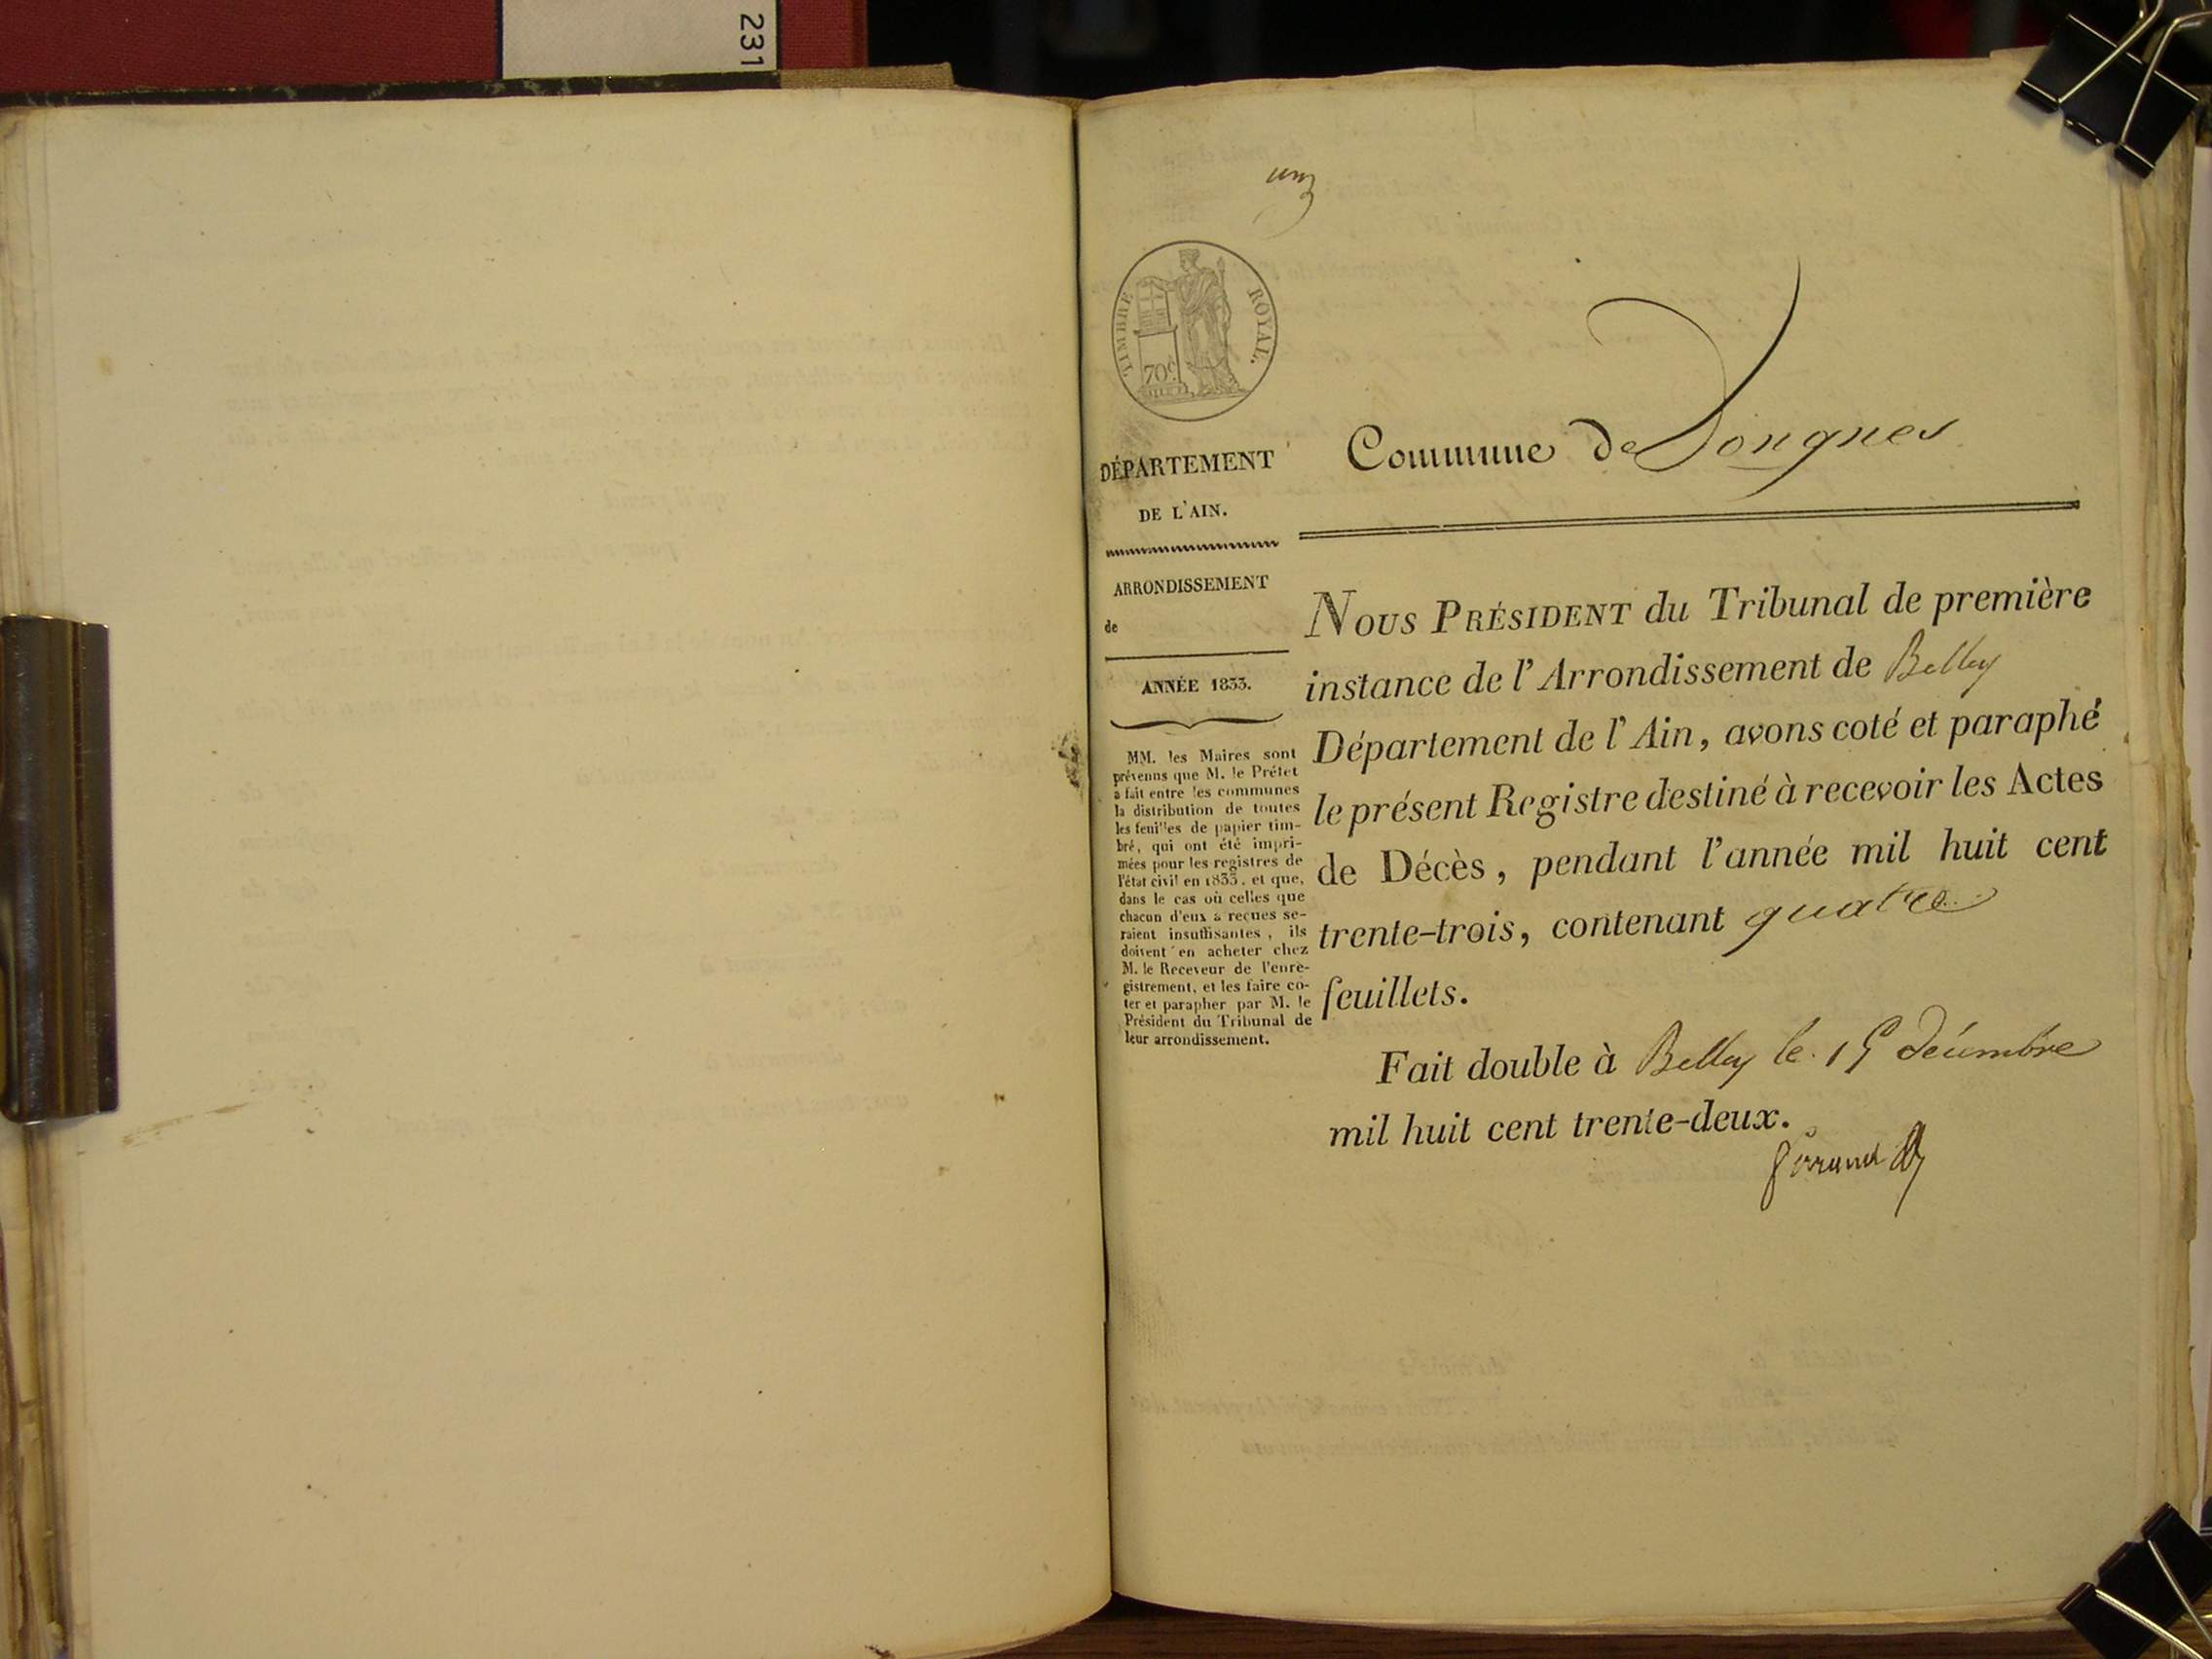 231
un
TIMBRE ROYAL.
70c
DÉPARTEMENT
DE L'AIN.
ARRONDISSEMENT
de
ANNÉE 1833.
MM. les Maires sont
prévenus que M. le Préfet
a fait entre les communes
la distribution de toutes
les feuilles de papier tim-
bré, qui ont été impri-
mées pour les registres de
l'état civil en 1833, et que,
dans le cas où celles que
chacun d'eux a reçues se-
raient insuffisantes, ils
doivent en acheter chez
M. le Receveur de l'enre-
gistrement, et les faire co-
ter et parapher par M. le
Président du Tribunal de
leur arrondissement.
Commune de Songnes
NOUS PRÉSIDENT du Tribunal de première
instance de l'Arrondissement de Belley
Département de l'Ain, avons coté et paraphé
le présent Registre destiné à recevoir les Actes
de Décès, pendant l'année mil huit cent
trente-trois, contenant quatre
feuillets.
Fait double à Belley le 15 décembre
mil huit cent trente-deux.